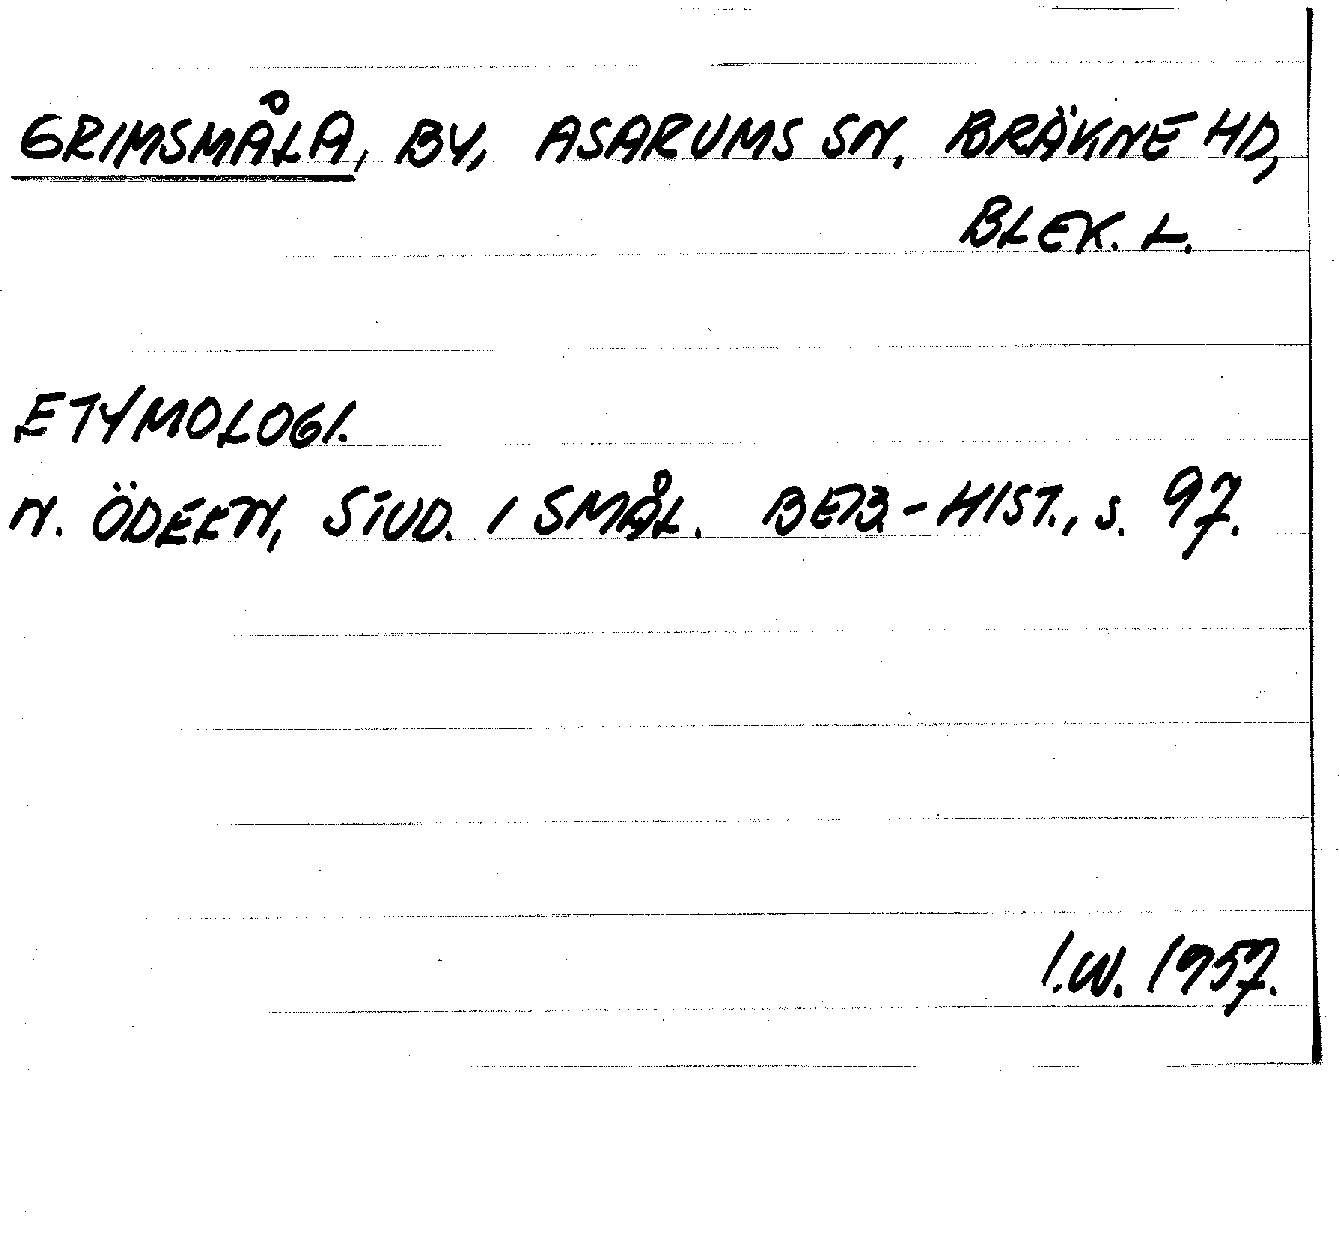 GRIMSMÅLA, BY, ASARUMS SN. BRÄKNE HD,
BLEK. L.
ETYMOLOGI.
N. ÖDEEN, STUD. I SMÅL. BEB.-HIST., S. 97.
I.W. 1957.